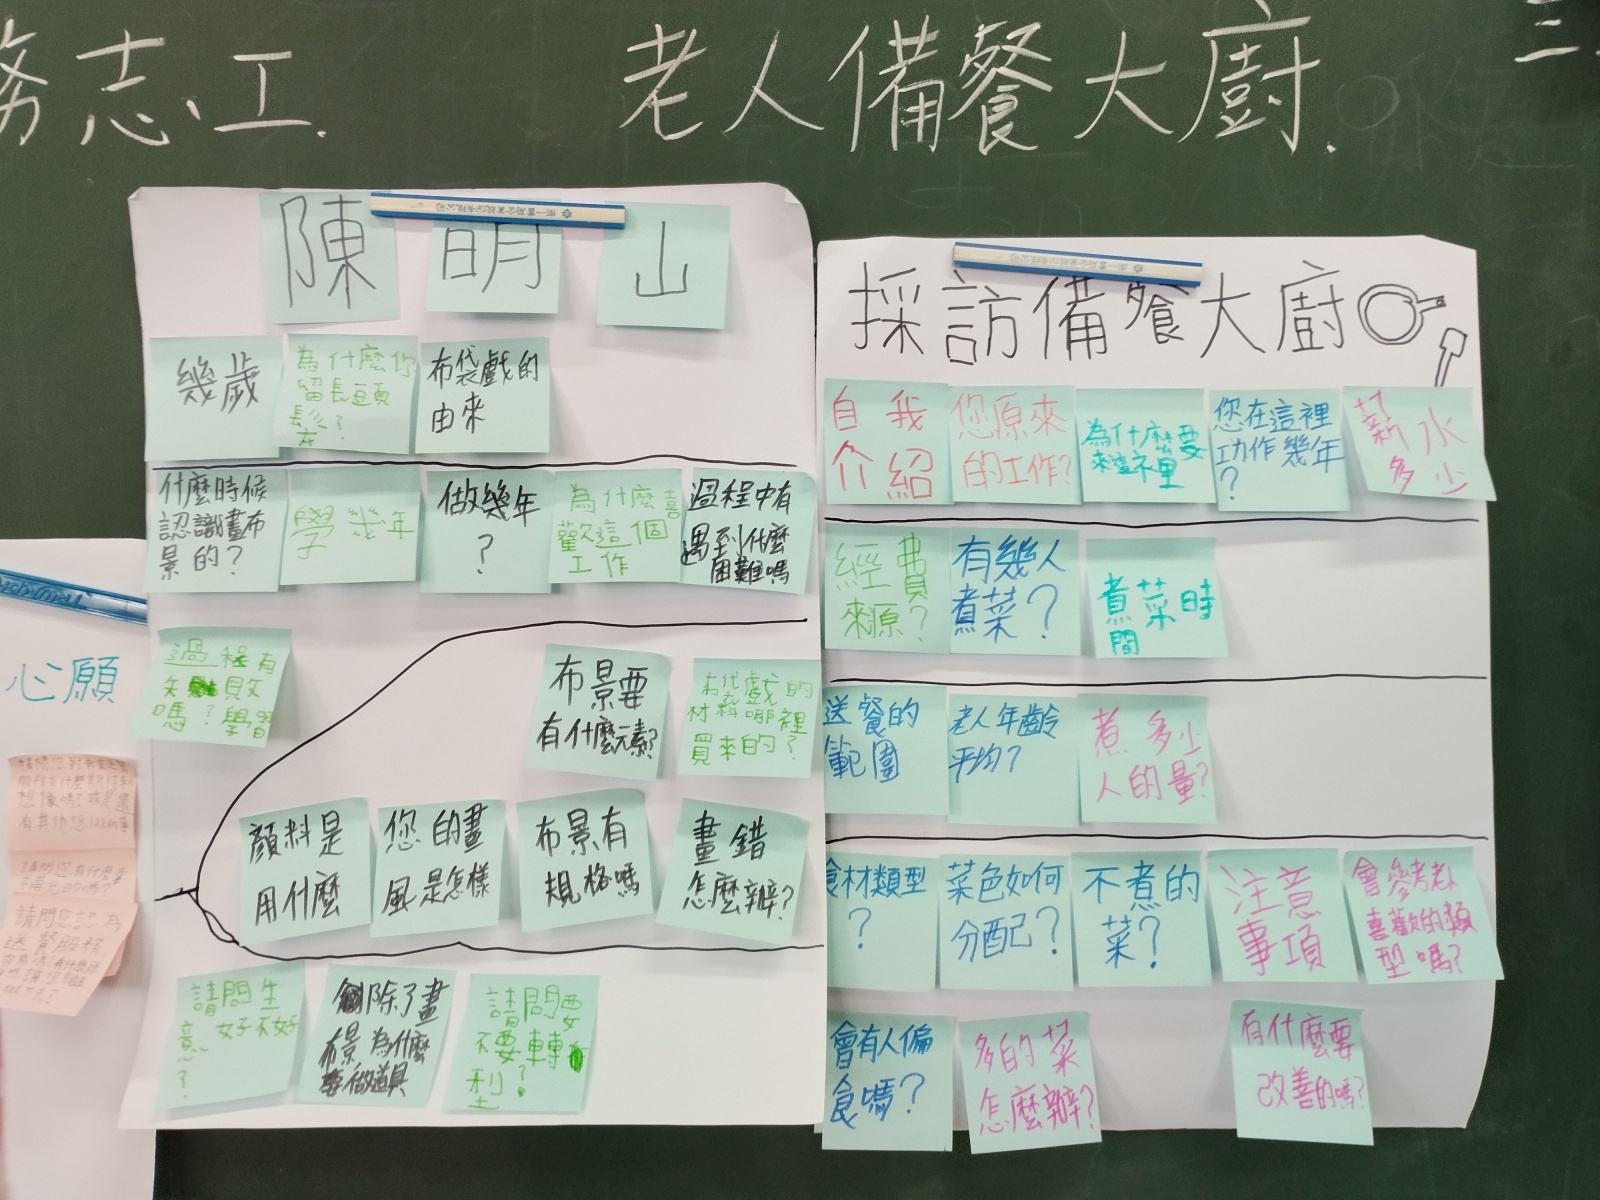 志工.
老人備餐大廚.
三
陳
明
山
幾歲
為什麼你
留長頭
髮?
布袋戲的
由來
什麼時候
認識畫布
景的?
學幾年
做幾年
?
為什麼喜
歡這個
工作
過程中有
遇到什麼
困難嗎
過程有
失敗
嗎?學習
布景要
有什麼元素?
布袋戲的
材料哪裡
買來的?
顏料是
用什麼
您的畫
風是怎樣
布景有
規格嗎
畫錯
怎麼辦?
請問生
意好不好
?
除了畫
布景為什麼
要做道具
請問要
不要轉
型?
採訪備餐大廚
自我
介紹
您原來
的工作?
為什麼要
來這裡
您在這裡
工作幾年
?
薪水
多少
經費
來源?
有幾人
煮菜?
煮菜時
間
送餐的
範圍
老人年齡
平均?
煮多少
人的量?
食材類型
?
菜色如何
分配?
不煮的
菜?
注意
事項
會參考老人
喜歡的類
型嗎?
會有人偏
食嗎?
多的菜
怎麼辦?
有什麼要
改善的嗎?
心願
請問您認為